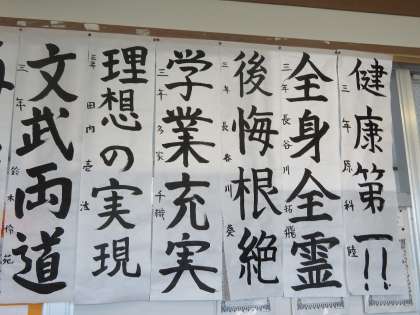 健康第一!!
三年 原 科 陸
全身全霊
三年 長谷川 拓飛
後悔根絶
三年 長春川 葵
学業充実
三年
千織
理想の実現
三年 田内壱法
文武両道
三年 鈴木怜苑